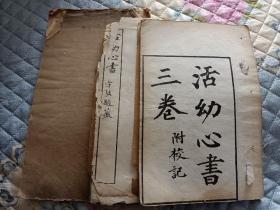 活幼心書
三卷
附校記
幼心書